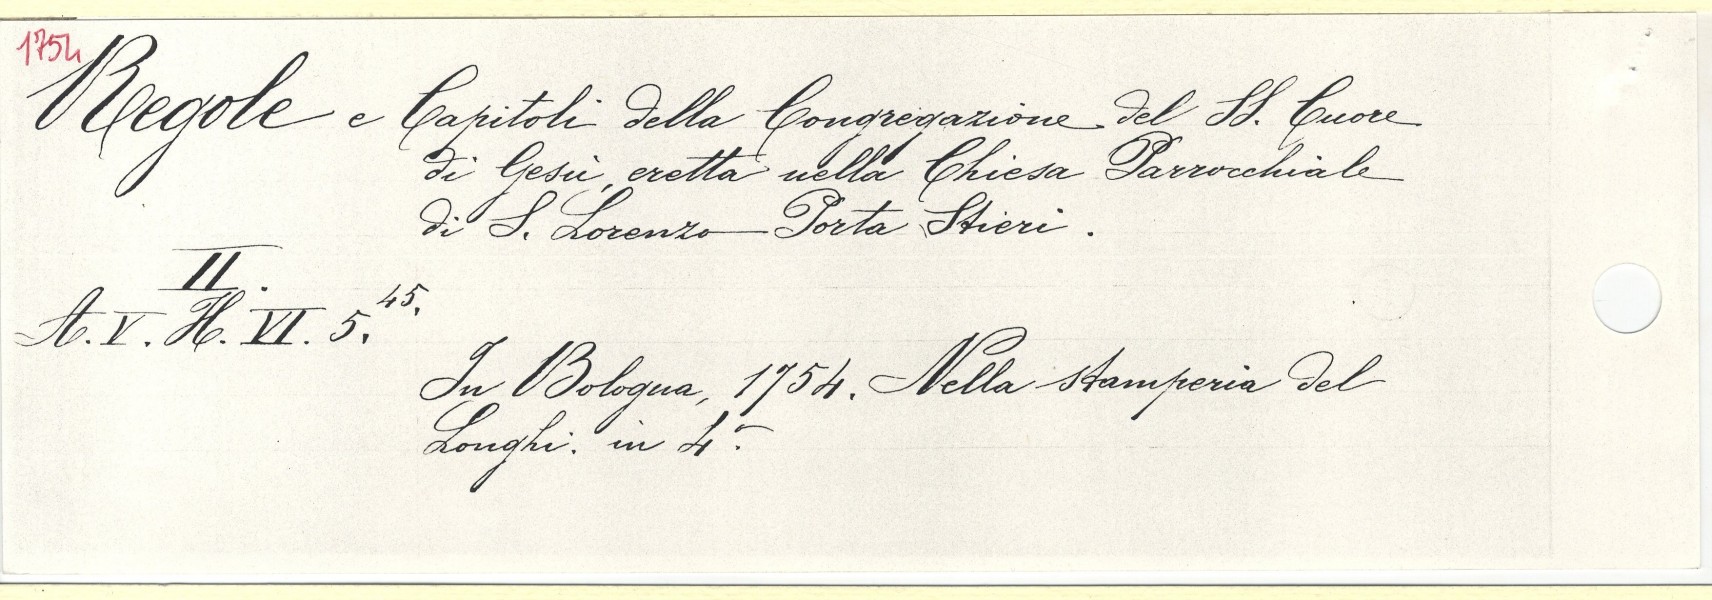 1754
Regole e Capitoli della Congregazione del SS. Cuore
di Gesù, eretta nella Chiesa Parrocchiale
di S. Lorenzo Porta Stieri.
II.
A.V. H. VI. 5.45.
In Bologna, 1754. Nella stamperia del
Longhi. in 4.°